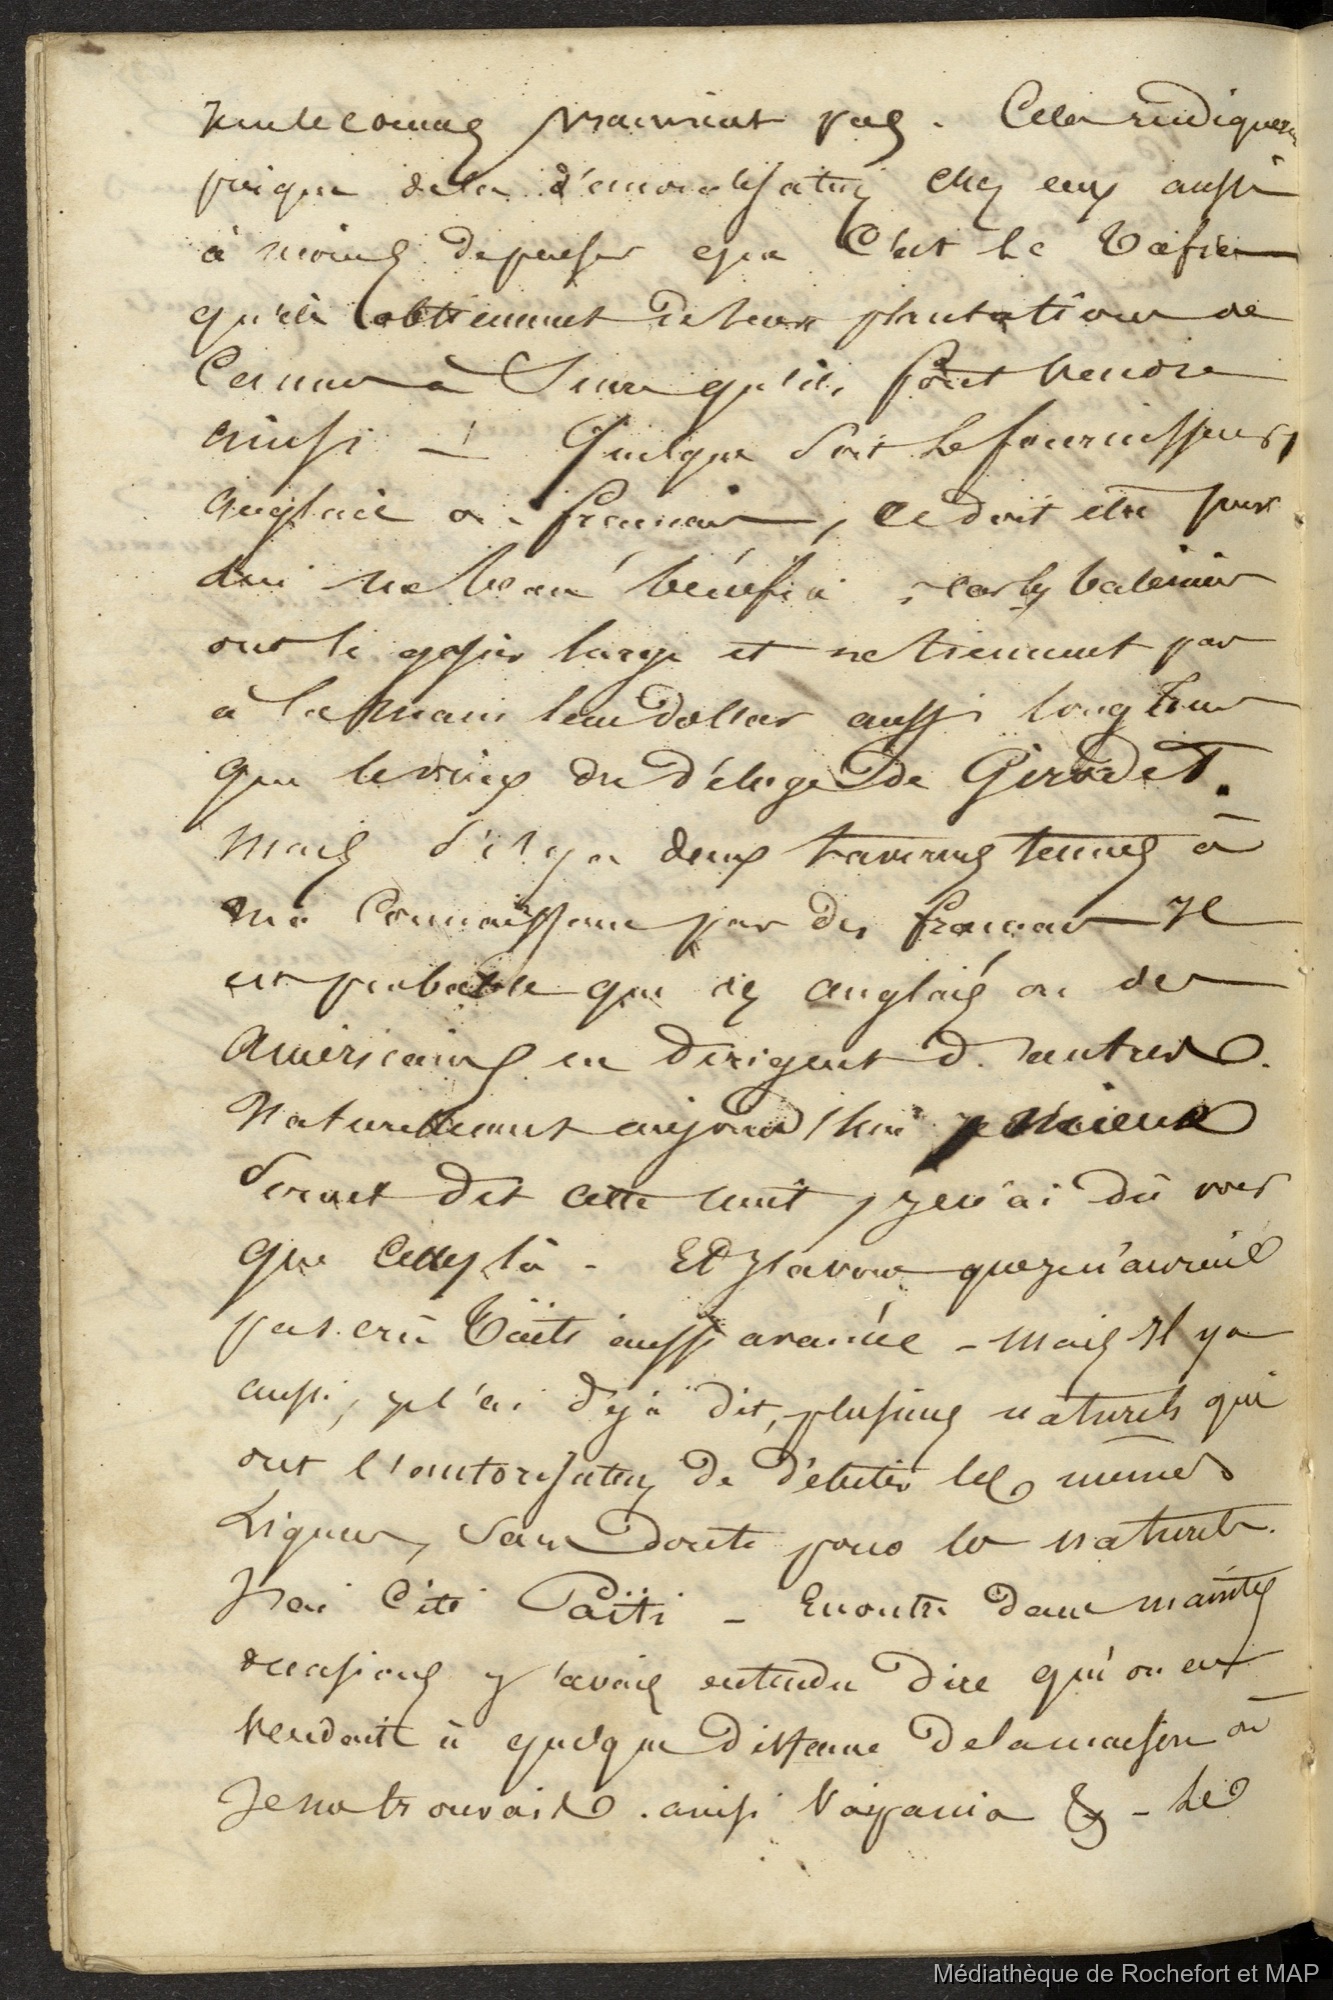 vraiment pas. Cela n'indiquerait
puique de la démoralisation chez eux aussi
à moins de penser que C'est le Tafia
qu'ils obtiennent de leurs plantations de
Cannes à Sucre qu'ils font vendre
ainsi — Quelque soit le fournisseur,
anglais ou francais, ce doit etre pour
lui un beau bénéfice, car les baleiniers
ont le gosier large et ne tiennent pas
à la main leur dollar aussi longtems
que le vieux du Déluge de Girodet.
Mais s'il y a deux tavernes tenues à
ma Connaissance par des francais Il
est probable que des anglais ou des
Américains en dirigent d'autres.
Naturellement aujourd'hui
soit dit cette nuit, je n'ai dû voir
que celles là - Et J'avoue que je n'aurais
pas crû Taïti aussi avancée - Mais Il y a
aussi, je l'ai déjà dit, plusieurs naturels qui
ont l'autorisation de débiter les mêmes
Liqueurs, Sans doute pour les naturels.
J'ai Cité Païti - En outre dans maintes
occasions j'avais entendu Dire qu'on en
Vendait à quelque distance de la maison où
Je me trouvais. ainsi &. - Le
Médiathèque de Rochefort et MAP